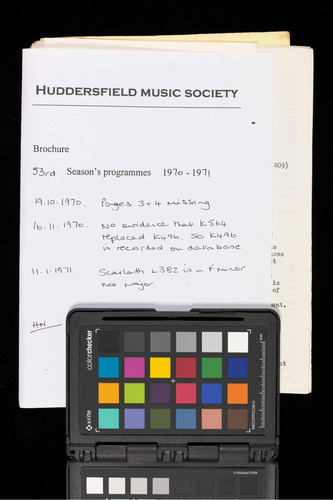 HUDDERSFIELD MUSIC SOCIETY
Brochure
53rd Season's programmes 1970 - 1971
19.10.1970. Pages 3+4 missing
16.11.1970. No evidence that K564
replaced K496. So K496
is recorded on database
11.1.1971 Scarlatti L382 is in F minor
not major.
HN
809)
is
ows
t
is
of
ent.
t
colorchecker
x-rite